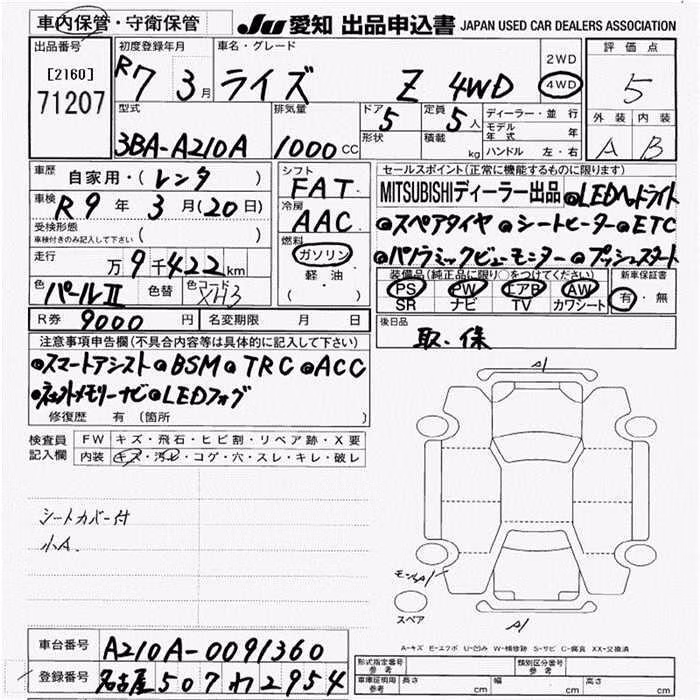 車内保管・守衛保管
JU 愛知 出品申込書 JAPAN USED CAR DEALERS ASSOCIATION
出品番号
[2160]
71207
初度登録年月
R7 3月
車名・グレード
ライズ Z 4WD
2WD
4WD
評価点
5
外装 内装
A B
型式
3BA-A210A
排気量
1000cc
ドア 5
形状
定員 5人
積載 kg
ディーラー・並行
モデル年式 年
ハンドル 左・右
車歴 自家用・(レンタ )
車検 R9年 3月(20日)
受検形態
車検付きのみ記入して下さい ( )
走行 万9千422km
色 パールⅡ 色替 色コード XH3
シフト
FAT
冷房
AAC
燃料
ガソリン
軽油
( )
セールスポイント(正常に機能するものに限ります)
MITSUBISHIディーラー出品 ●LEDヘッドライト
●スペアタイヤ ●シートヒーター ●ETC
●パノラミックビューモニター ●プッシュスタート
装備品(純正品に限り○をつけてください)
PS PW エアB AW
SR ナビ TV カワシート
新車保証書
有・無
R券 9000円 名変期限 月 日
後日品
取・保
注意事項申告欄(不具合内容等は具体的に記入して下さい)
●スマートアシスト ●BSM ●TRC ●ACC
メモリーナビ ●LEDフォグ
修復歴 有 (箇所 )
検査員記入欄
FW キズ・飛石・ヒビ割・リペア跡・X要
内装 キズ・汚レ・コゲ・穴・スレ・キレ・破レ
シートカバー付
小A.
A1
モールA1
スペア
A1
A-キズ E-エクボ U-凹み W-補修跡 S-サビ C-腐食 XX-交換済
車台番号 A210A-0091360
登録番号 名古屋 507 わ 2954
形式指定番号 参考
類別区分番号 参考
車庫証明用 参考 長さ cm 幅 cm 高さ cm